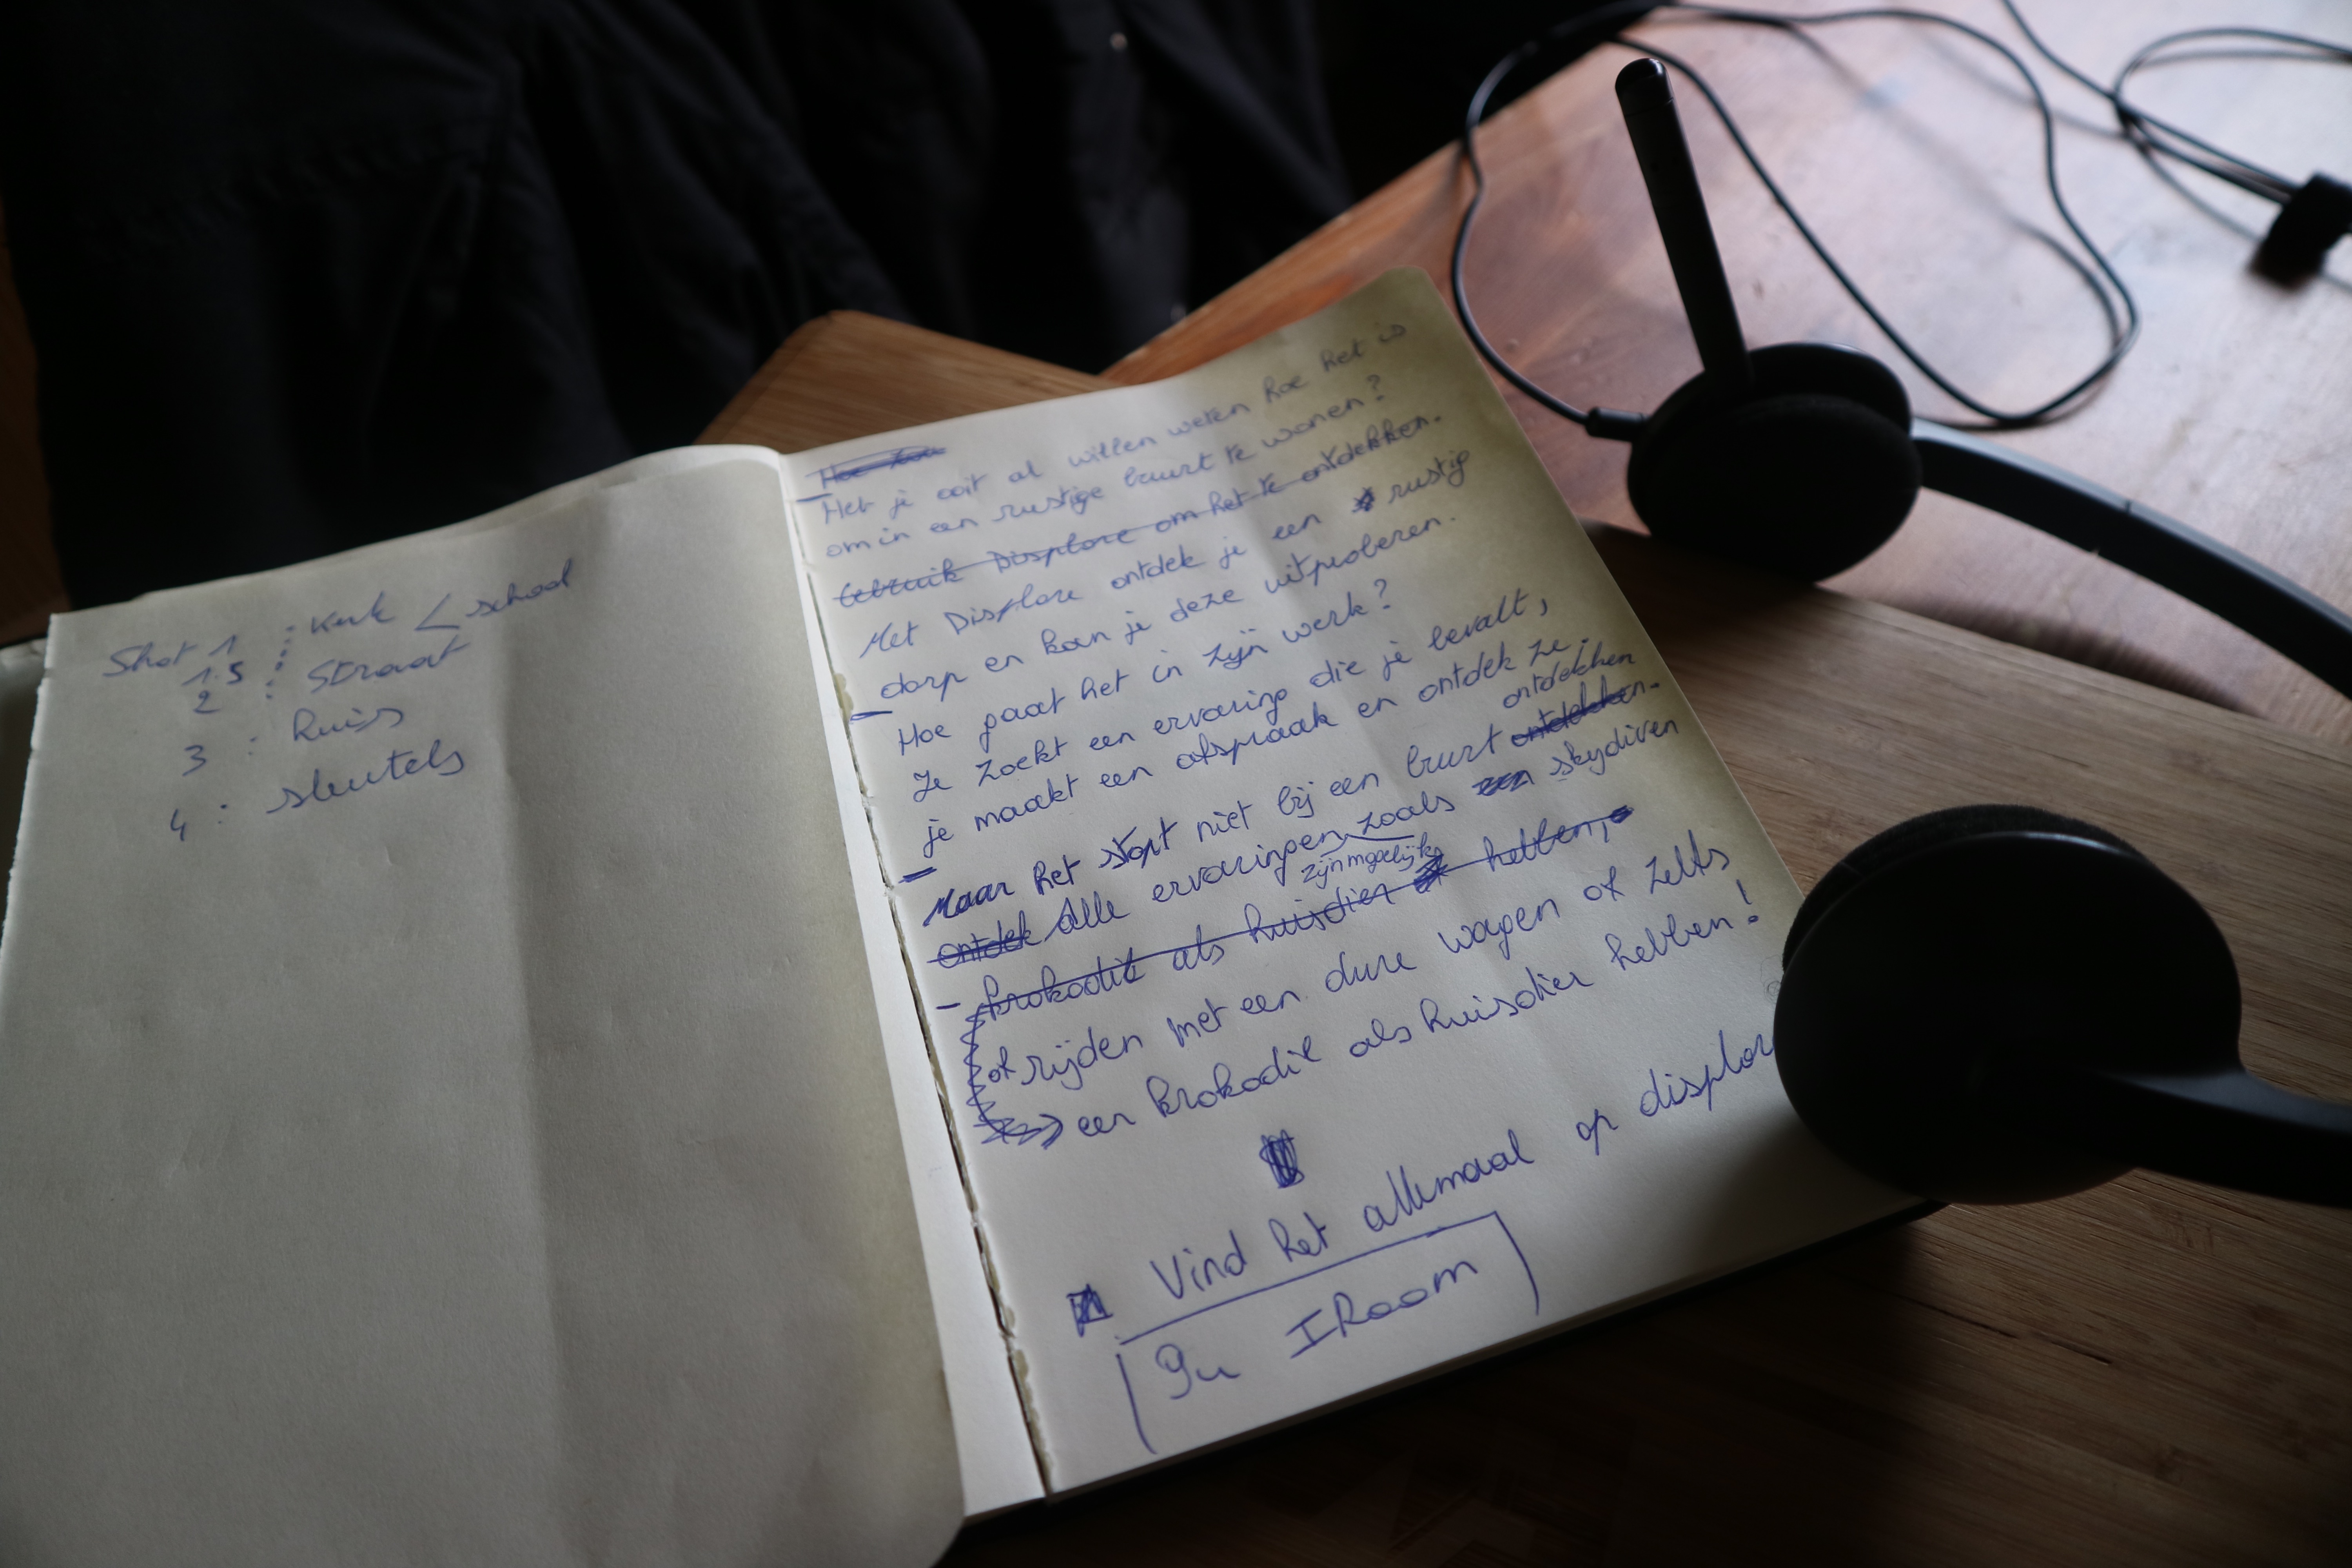 Shot 1 : Kerk < school
1.5 :
2 : Straat
3 : huis
4 : sleutels
Hoe zou
Heb je ooit al willen weten hoe het is
om in een rustige buurt te wonen?
Gebruik Displore om het te ontdekken.
Met Displore ontdek je een rustig
dorp en kan je deze uitproberen.
Hoe gaat het in zijn werk?
Je zoekt een ervaring die je bevalt,
je maakt een afspraak en ontdek ze.
ontdekken
Maar het stopt niet bij een buurt ontdekken.
ontdek Alle ervaringen zoals een skydiven
zijn mogelijk
- krokodil als huisdier hebben,
of rijden met een dure wagen of zelfs
een krokodil als huisdier hebben!
Vind het allemaal op displor
9u IRoom